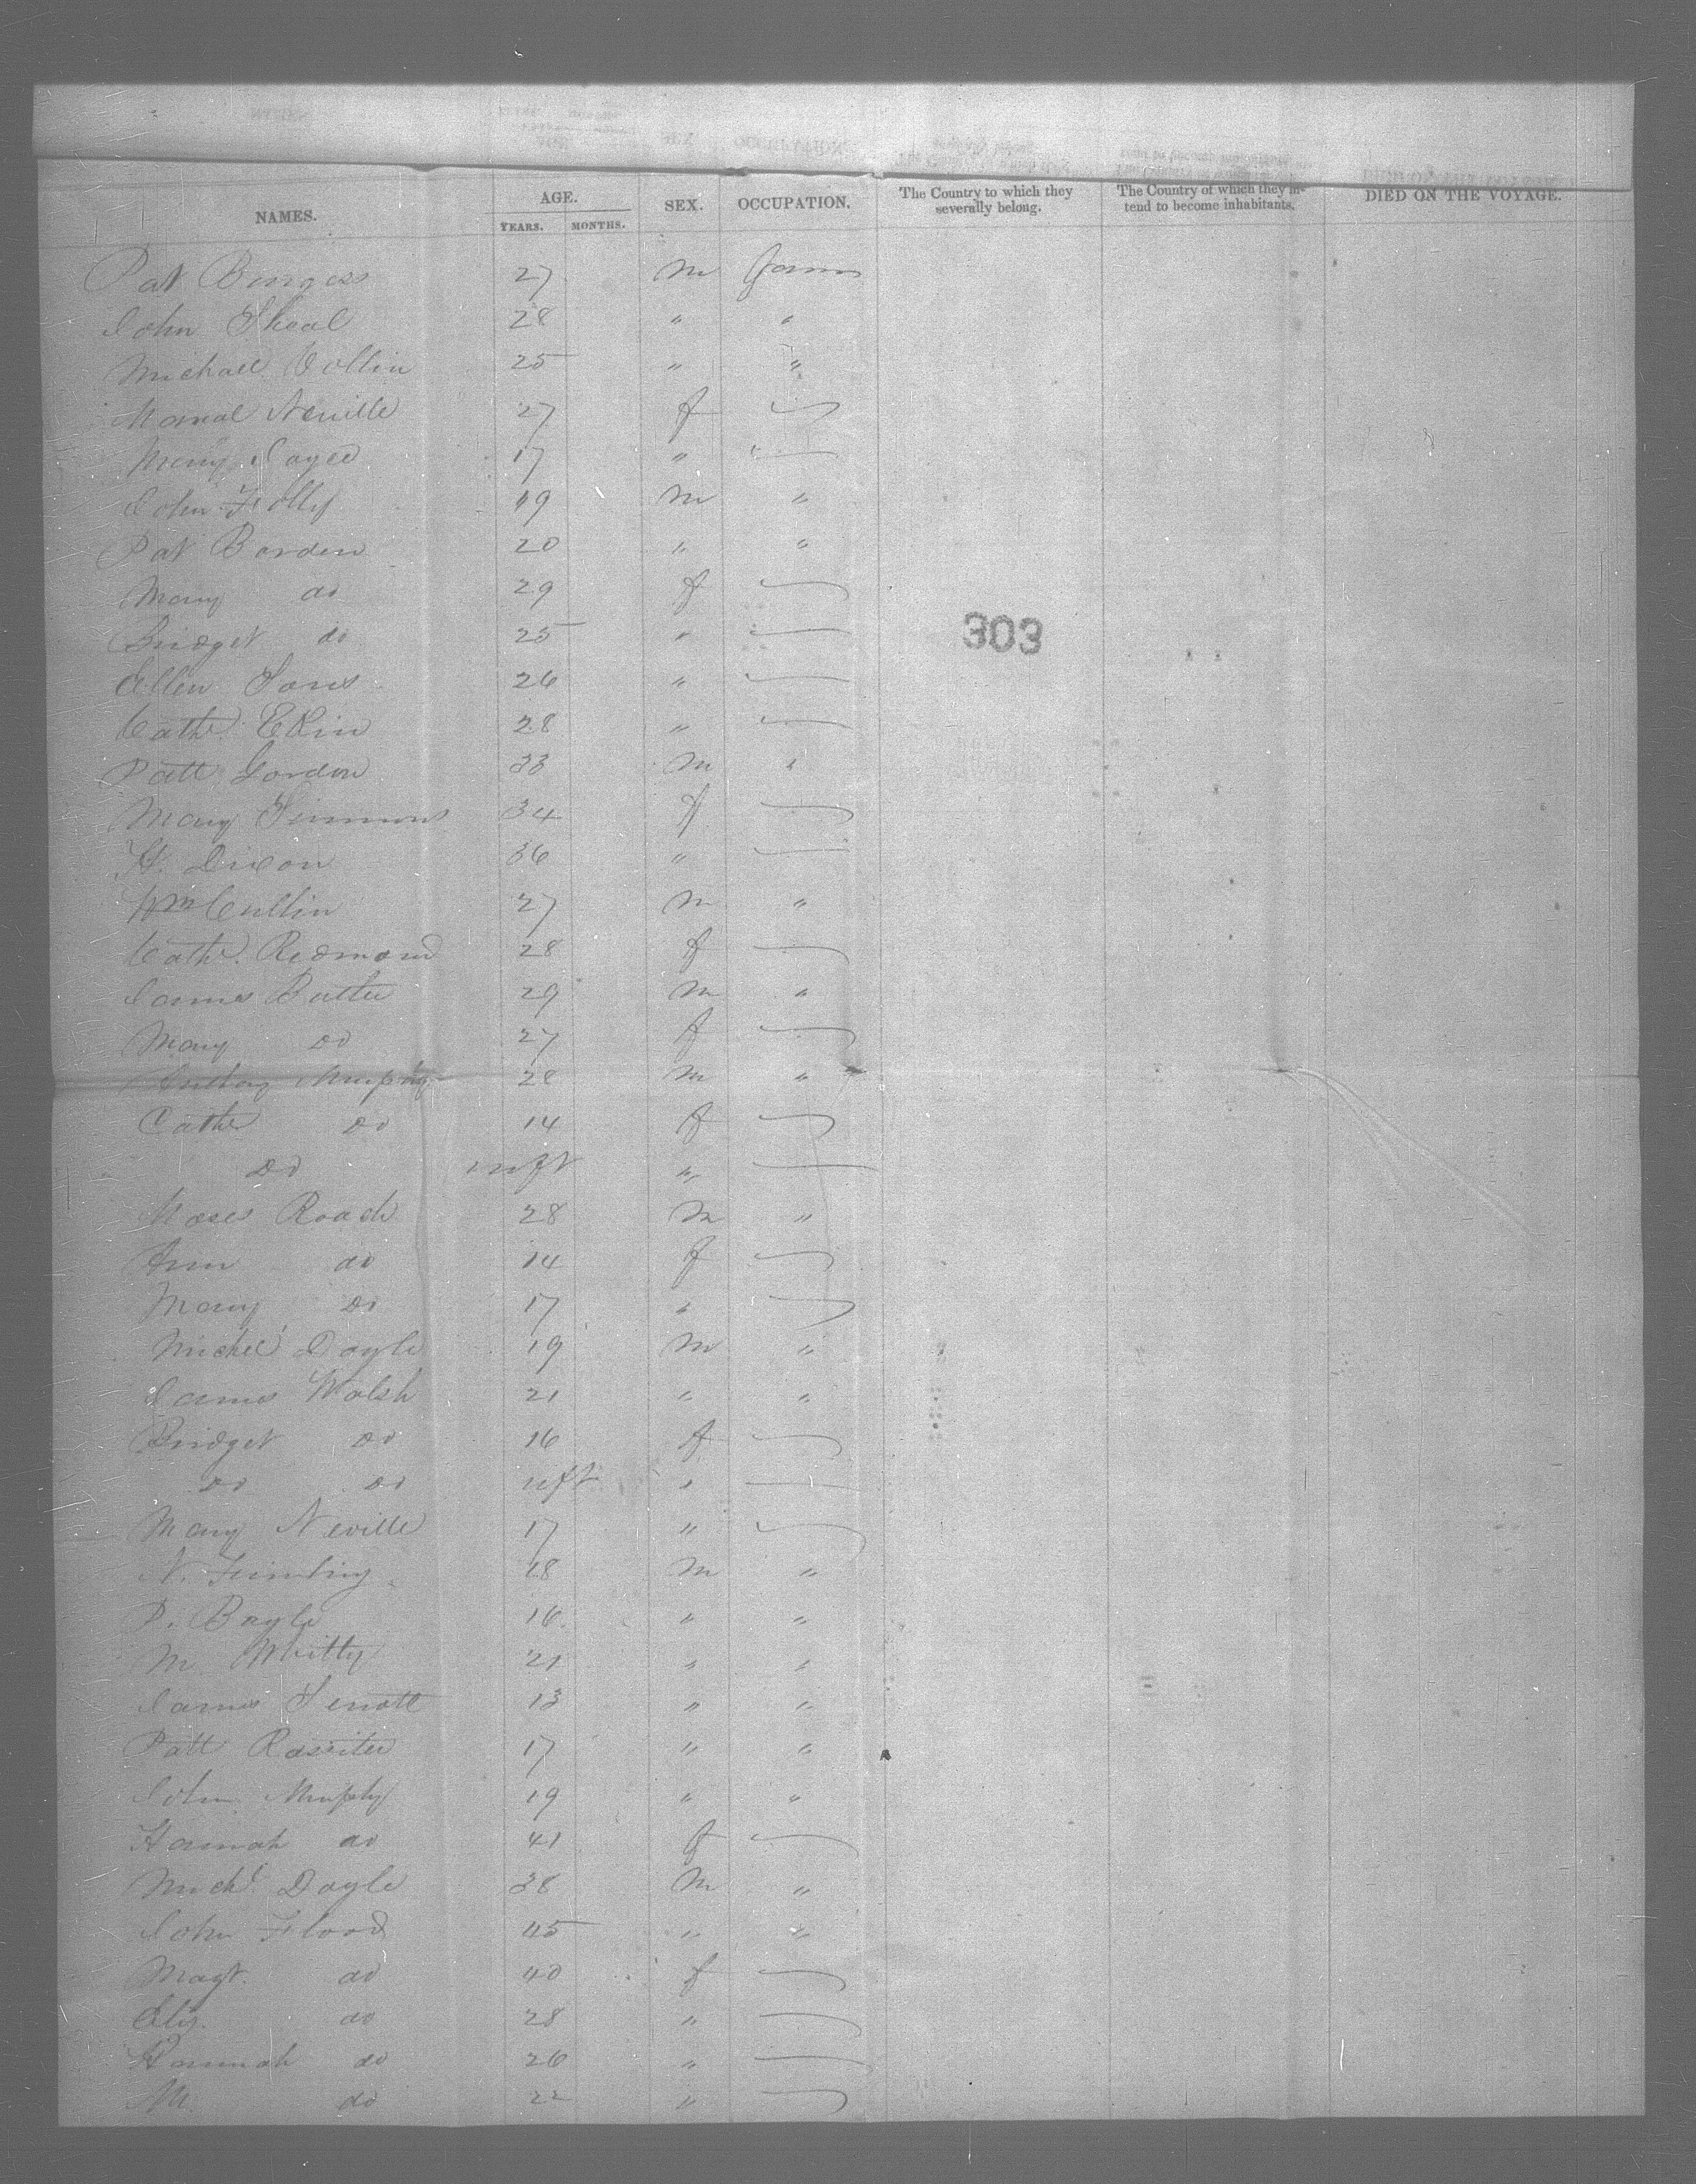 NAMES. AGE. SEX. OCCUPATION. The Country to which they severally belong. The Country of which they intend to become inhabitants. DIED ON THE VOYAGE.
YEARS. MONTHS.
Pat Burgess 27 m
John Sheal 28 " "
Michael Collin 25 " "
Neville 27 f
Mary 17 "
John 19 m "
Pat Barden 20 " "
Mary do 29 f
Bridget do 25 "
303
Ellen 26 "
Cath. 28 "
Patt Gordon 33 m "
Mary Simmons 34 f
H. Dixon 36 "
Wm Cullin 27 m "
Cath. Redmond 28 f
James Butler 29 m "
Mary do 27 f
Murphy 28 m "
Cathe do 14 f
do inft "
Moses Roach 28 m "
Ann do 14 f
Mary do 17 "
Michel Doyle 19 m "
James Walsh 21 " "
Bridget do 16 f
do do inft "
Mary Neville 17 "
N. 28 m "
P. Boyle 16 " "
M. Whitty 21 " "
James Senott 13 " "
Patt Rossiter 17 " "
John Murphy 19 " "
Hannah do 41 f
Michl Doyle 38 m "
John Flood 45 " "
Magt. do 40 f
Eliz. do 28 "
Hannah do 26 "
M. do 22 "